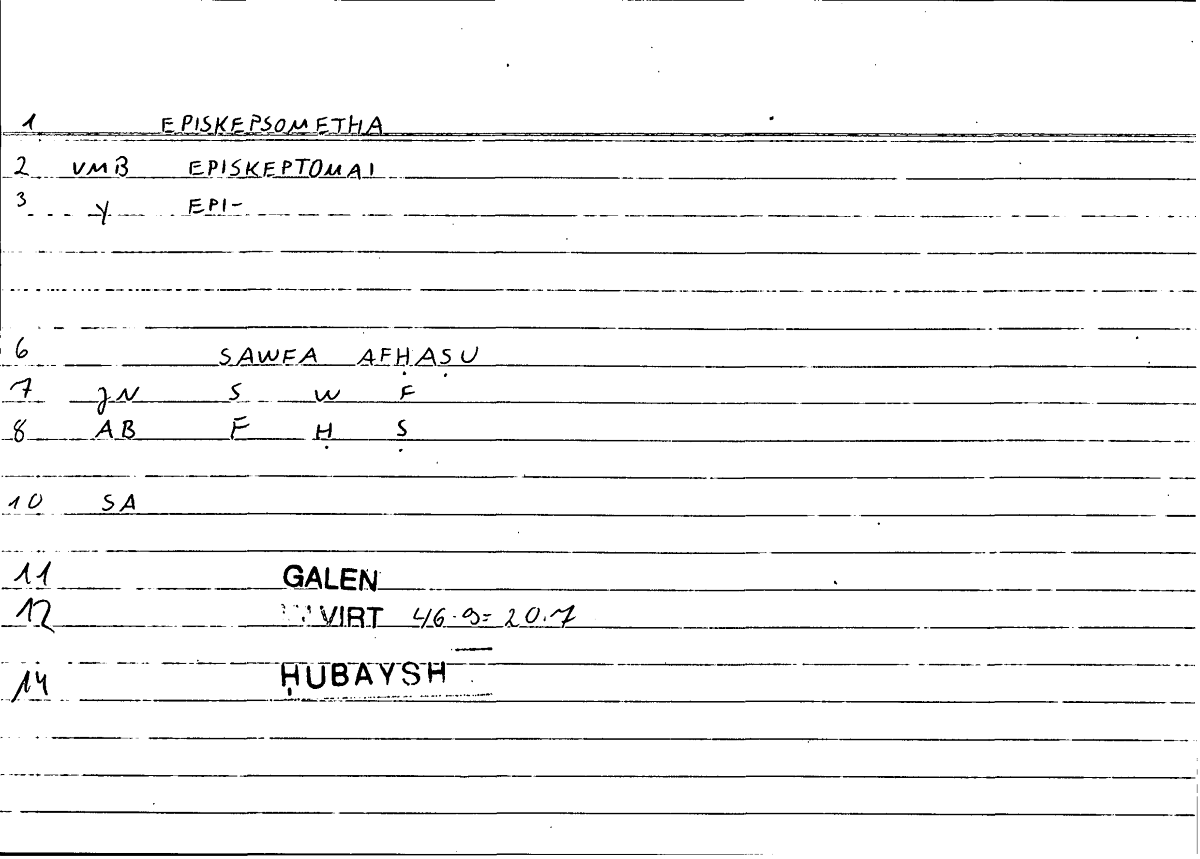 1 EPISKEPSOMETHA
2 VMB EPISKEPTOMAI
3 Y EPI-
6 SAWFA AFḤAṢU
7 JN S W F
8 AB F Ḥ Ṣ
10 SA
11 GALEN
12 VIRT 46.9=20.7
14 ḤUBAYSH